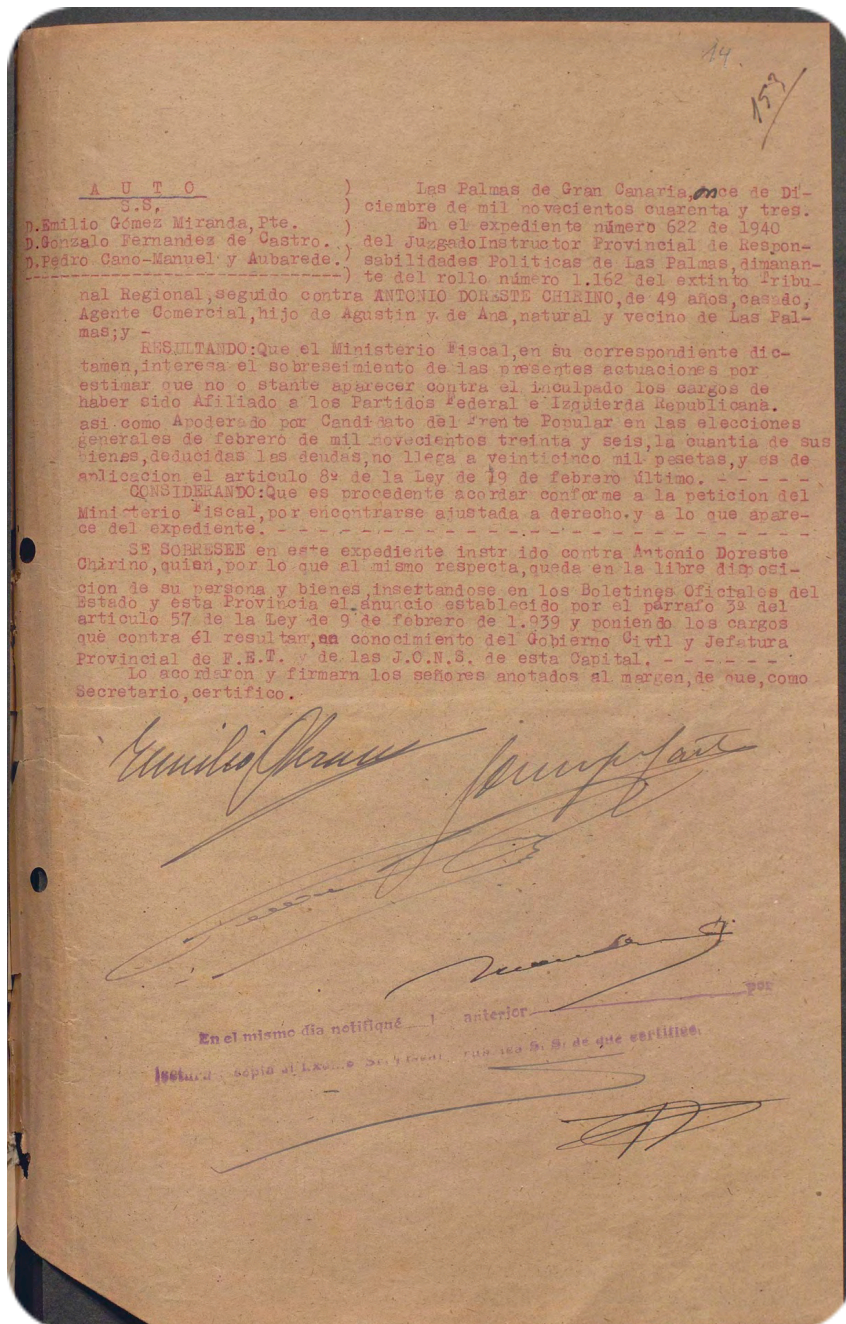 14
153
A U T O
S.S.
D.Emilio Gómez Miranda,Pte.
D.Gonzalo Fernandez de Castro..
D.Pedro Cano-Manuel y Aubarede.
Las Palmas de Gran Canaria,once de Di-
ciembre de mil novecientos cuarenta y tres.
En el expediente número 622 de 1940
del JuzgadoInstructor Provincial de Respon-
sabilidades Politicas de Las Palmas,dimanan-
te del rollo número 1.162 del extinto Tribu-
nal Regional,seguido contra ANTONIO DORESTE CHIRINO,de 49 años,casado,
Agente Comercial,hijo de Agustin y de Ana,natural y vecino de Las Pal-
mas;y -
RESULTANDO:Que el Ministerio Fiscal,en su correspondiente dic-
tamen,interesa el sobreseimiento de las presentes actuaciones por
estimar que no o stante aparecer contra el inculpado los cargos de
haber sido Afiliado a los Partidos Federal e Izquierda Republicana.
asi como Apoderado por Candidato del Frente Popular en las elecciones
generales de febrero de mil novecientos treinta y seis,la cuantia de sus
bienes,deducidas las deudas,no llega a veinticinco mil pesetas,y es de
aplicacion el articulo 8º de la Ley de 19 de febrero último. - - - - -
CONSIDERANDO:Que es procedente acordar conforme a la peticion del
Ministerio Fiscal,por encontrarse ajustada a derecho.y a lo que apare-
ce del expediente. - - - - - - - - - - - - - - - - - - - - - - - - - -
SE SOBRESEE en este expediente instr ido contra Antonio Doreste
Chirino,quien,por lo que al mismo respecta,queda en la libre disposi-
cion de su persona y bienes,insertandose en los Boletines Oficiales del
Estado y esta Provincia el anuncio establecido por el párrafo 3º del
articulo 57 de la Ley de 9 de febrero de 1.939 y poniendo los cargos
que contra él resultan,en conocimiento del Gobierno Civil y Jefatura
Provincial de F.E.T. y de las J.O.N.S. de esta Capital. - - - - - - -
Lo acordaron y firmarn los señores anotados al margen,de que,como
Secretario,certifico.-
En el mismo dia notifiqué anterior por
lectura copia al Excmo Sr. S. S. de que certifico.